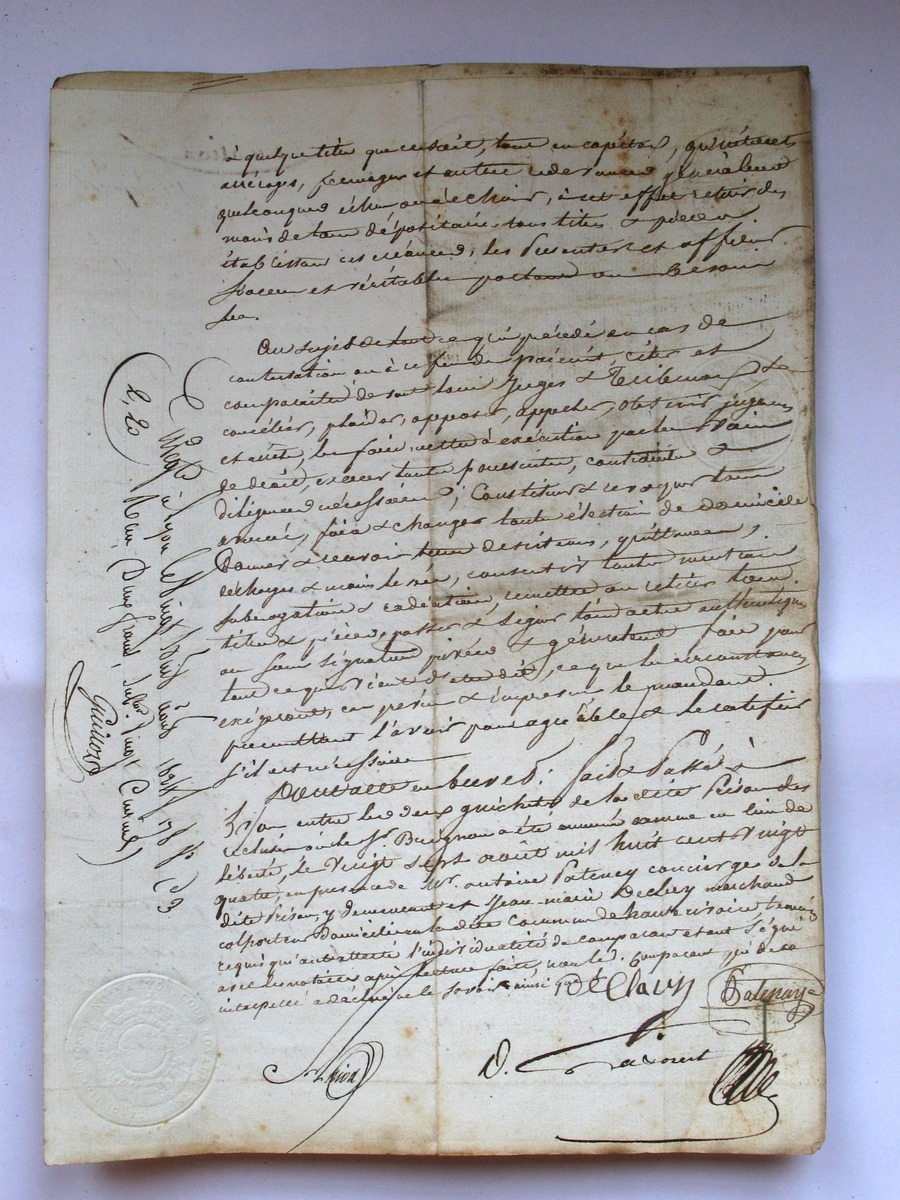 à quelque titre que ce soit, tant en capitaux, qu'intérêts
arrérages, fermages et autres redevances généralement
quelconques échus ou à échoir, à cet effet retirer des
mains de tous dépositaires tous titres & pièces
établissant ces créances, les Présenter et affirmer
sincères et véritables partout ou Besoin
sera.
Au sujet de tout ce qui précède en cas de
contestation ou à défaut de paiement, citer et
comparaître devant tous Juges & Tribunaux, se
concilier, plaider, opposer, appeler, obtenir jugemens
et arrêts, les faire mettre à exécution par les voies
de droit, exercer toutes poursuites, contraintes &
diligences nécessaires; Constituer & révoquer tous
avoués, faire & changer toute élection de domicile
Donner & recevoir tous désistemens, quittances,
décharges & main levées, consentir toutes mentions
subrogations & radiations, remettre ou retirer tous
titres & pièces, passer & signer tous actes authentiques
ou sous signatures privées & généralement faire pour
tout ce que vient d'être dit, ce que les circonstances
exigeront, en promettant le mandant
l'avoir pour agréable & le ratifier
s'il est nécessaire
Dont acte en brevet. fait & Passé à
Lyon entre les deux guichets de la dite Prison des
où le Sr. a été amené comme en lieu de
liberté, le vingt sept août mil huit cent vingt
quatre, en présence de Sr. antoine concierge de la
dite Prison, y demeurant et Jean-marie marchand
colporteur domicilié en la dite Commune de témoins
requis qui ont attesté l'individualité du comparant et ont signé
avec les notaires après lecture faite, non le Comparant qui de ce
interpellé a déclaré ne le savoir
Enreg. à Lyon le vingt huit août 1824
Reçu Deux francs, Vingt Centimes